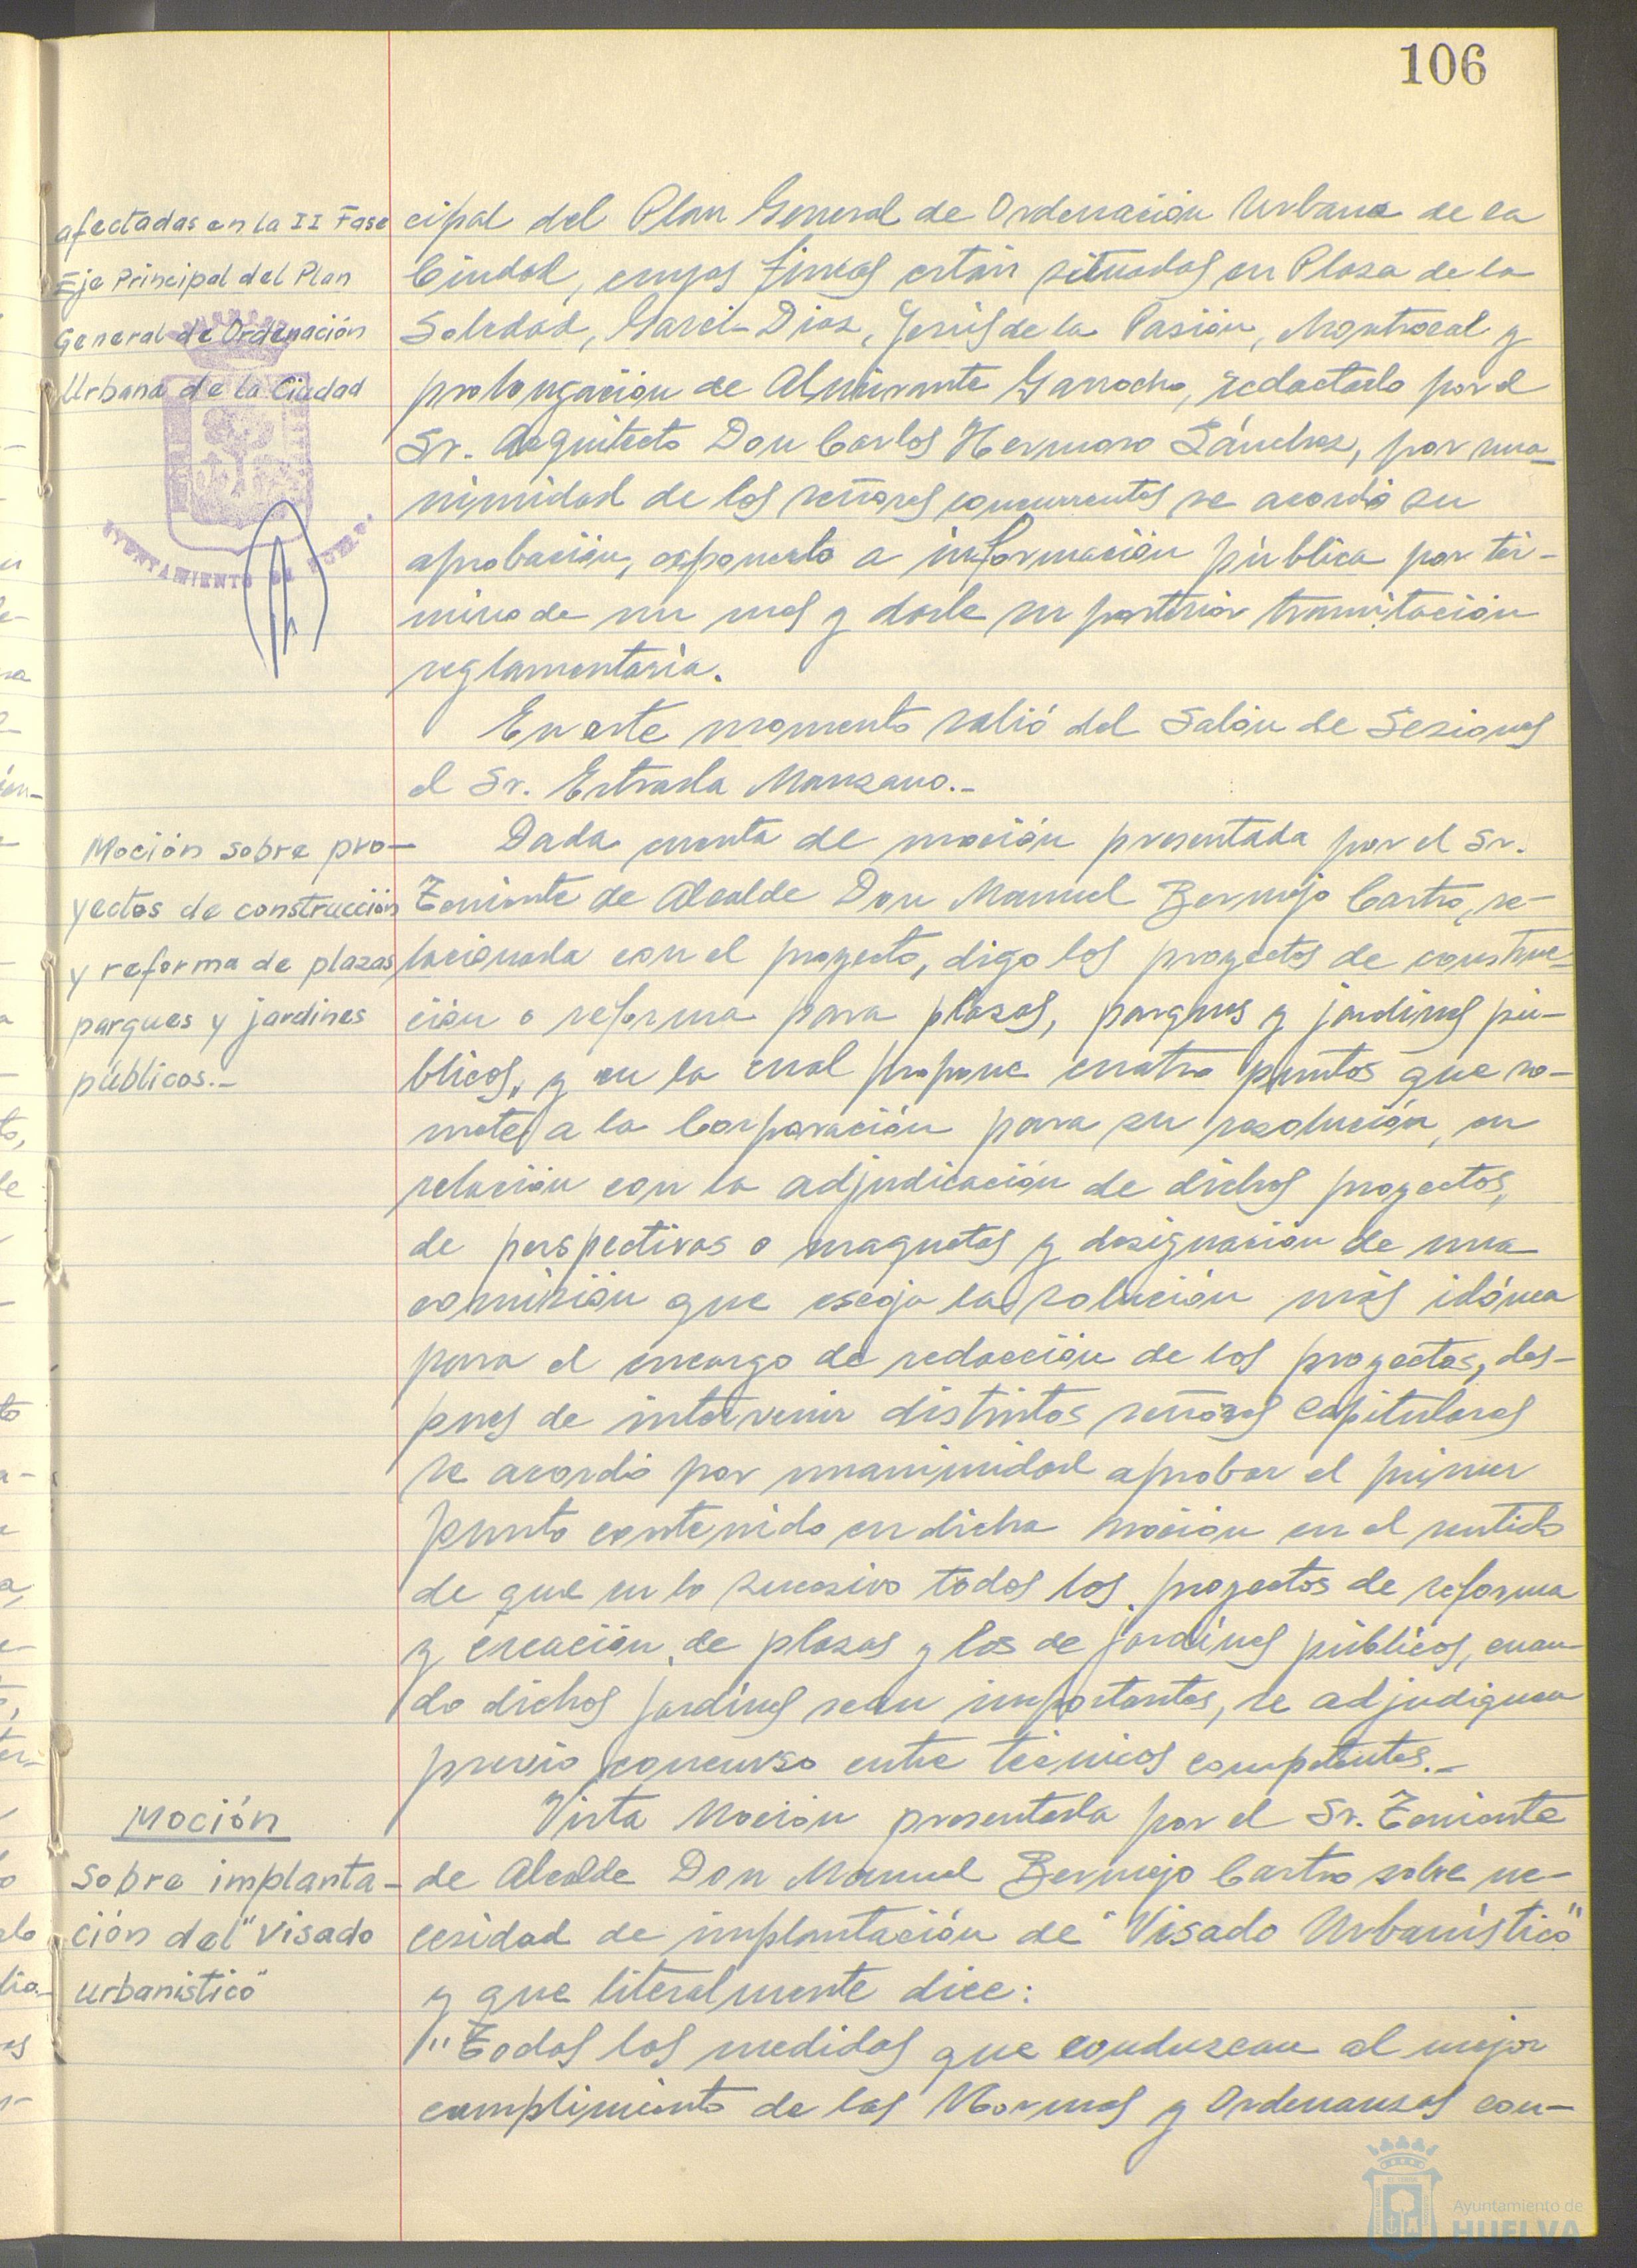 106
afectadas en la II Fase
Eje Principal del Plan
General de Ordenación
Urbana de la Ciudad
AYUNTAMIENTO DE HUELVA
cipal del Plan General de Ordenación Urbana de la
Ciudad, cuyas fincas están situadas en Plaza de la
Soledad, Garci-Diaz, Jesús de la Pasión, Montrocal y
prolongación de Almirante Garrocho, redactado por el
Sr. Arquitecto Don Carlos Hermoso Sánchez, por una-
nimidad de los señores concurrentes se acordó su
aprobación, exponerlo a información pública por tér-
mino de un mes y darle su posterior tramitación
reglamentaria.
En este momento salió del Salón de Sesiones
el Sr. Estrada Manzano.-
Moción sobre pro-
yectos de construcción
y reforma de plazas
parques y jardines
públicos.-
Dada cuenta de moción presentada por el Sr.
Teniente de Alcalde Don Manuel Bermejo Castro, re-
lacionada con el proyecto, digo los proyectos de construc-
ción o reforma para plazas, parques y jardines pú-
blicos, y en la cual propone cuatro puntos que so-
mete a la Corporación para su resolución, en
relación con la adjudicación de dichos proyectos,
de perspectivas o maquetas y designación de una
comisión que escoja la solución más idónea
para el encargo de redacción de los proyectos, des-
pues de intervenir distintos señores Capitulares
se acordó por unanimidad aprobar el primer
punto contenido en dicha moción en el sentido
de que en lo sucesivo todos los proyectos de reforma
y creación de plazas y los de jardines públicos, cuan-
do dichos jardines sean importantes, se adjudiquen
previo concurso entre técnicos competentes.-
Moción
sobre implanta-
ción del "visado
urbanistico"
Vista Moción presentada por el Sr. Teniente
de Alcalde Don Manuel Bermejo Castro sobre ne-
cesidad de implantación de "Visado Urbanístico"
y que literalmente dice:
"Todas las medidas que conduzcan al mejor
cumplimiento de las Normas y Ordenanzas con-
Ayuntamiento de
HUELVA